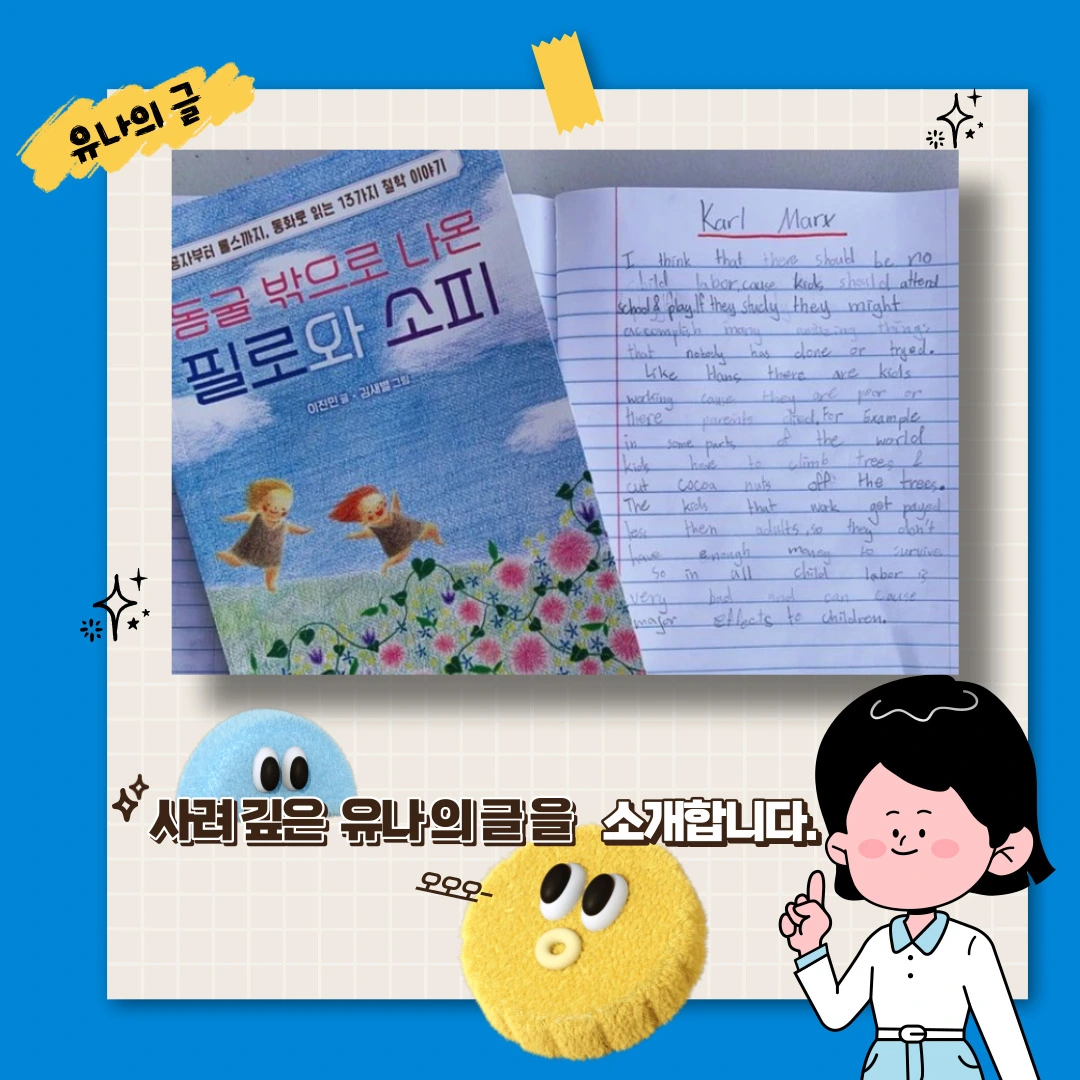 유나의 글
공자부터 롤스까지, 동화로 읽는 13가지 철학 이야기
동굴 밖으로 나온
필로와 소피
이진민 글 · 김새별 그림
Karl Marx
I think that there should be no
child labor, cause kids should attend
school & play. If they study they might
accomplish many amazing things
that nobody has done or tryed.
Like Hans there are kids
working cause they are poor or
there parents died. For Example
in some parts of the world
kids have to climb trees &
cut cocoa nuts off the trees.
The kids that work get payed
less then adults, so they don't
have enough money to survive
So in all child labor is
very bad and can cause
major effects to children.
사려 깊은 유나의 글을 소개합니다.
오오오~